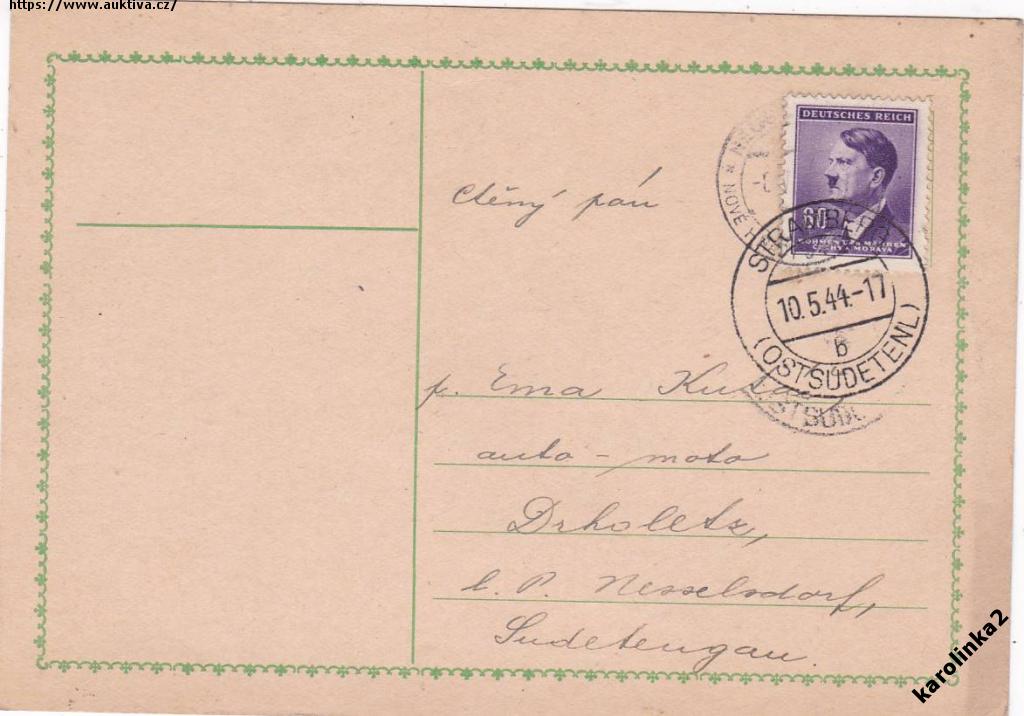 https://www.auktiva.cz/
DEUTSCHES REICH
60
BÖHMEN UND MÄHREN
ČECHY A MORAVA
NOVÉ
STRAMBERG
10.5.44.-17
b
(OSTSUDETENL)
Ctěný pán
p. Ema
auto - moto
Drholetz,
b. P. Nesselsdorf,
Sudetengau.
karolinka2